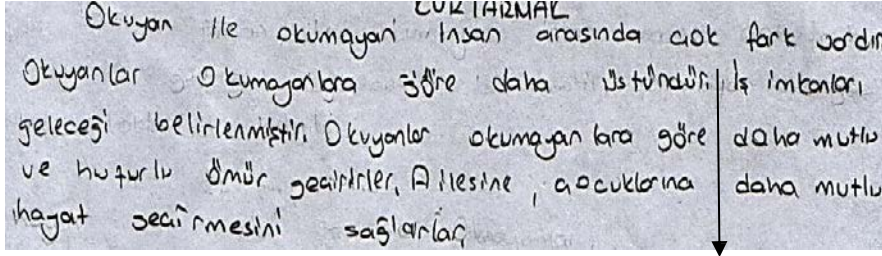 KURTARMAK
Okuyan ile okumayan insan arasında çok fark vardır
Okuyanlar Okumayanlara göre daha üstündür. İş imkanları
geleceği belirlenmiştir. Okuyanlar okumayanlara göre daha mutlu
ve huzurlu ömür geçirirler. Ailesine, çocuklarına daha mutlu
hayat geçirmesini sağlarlar.